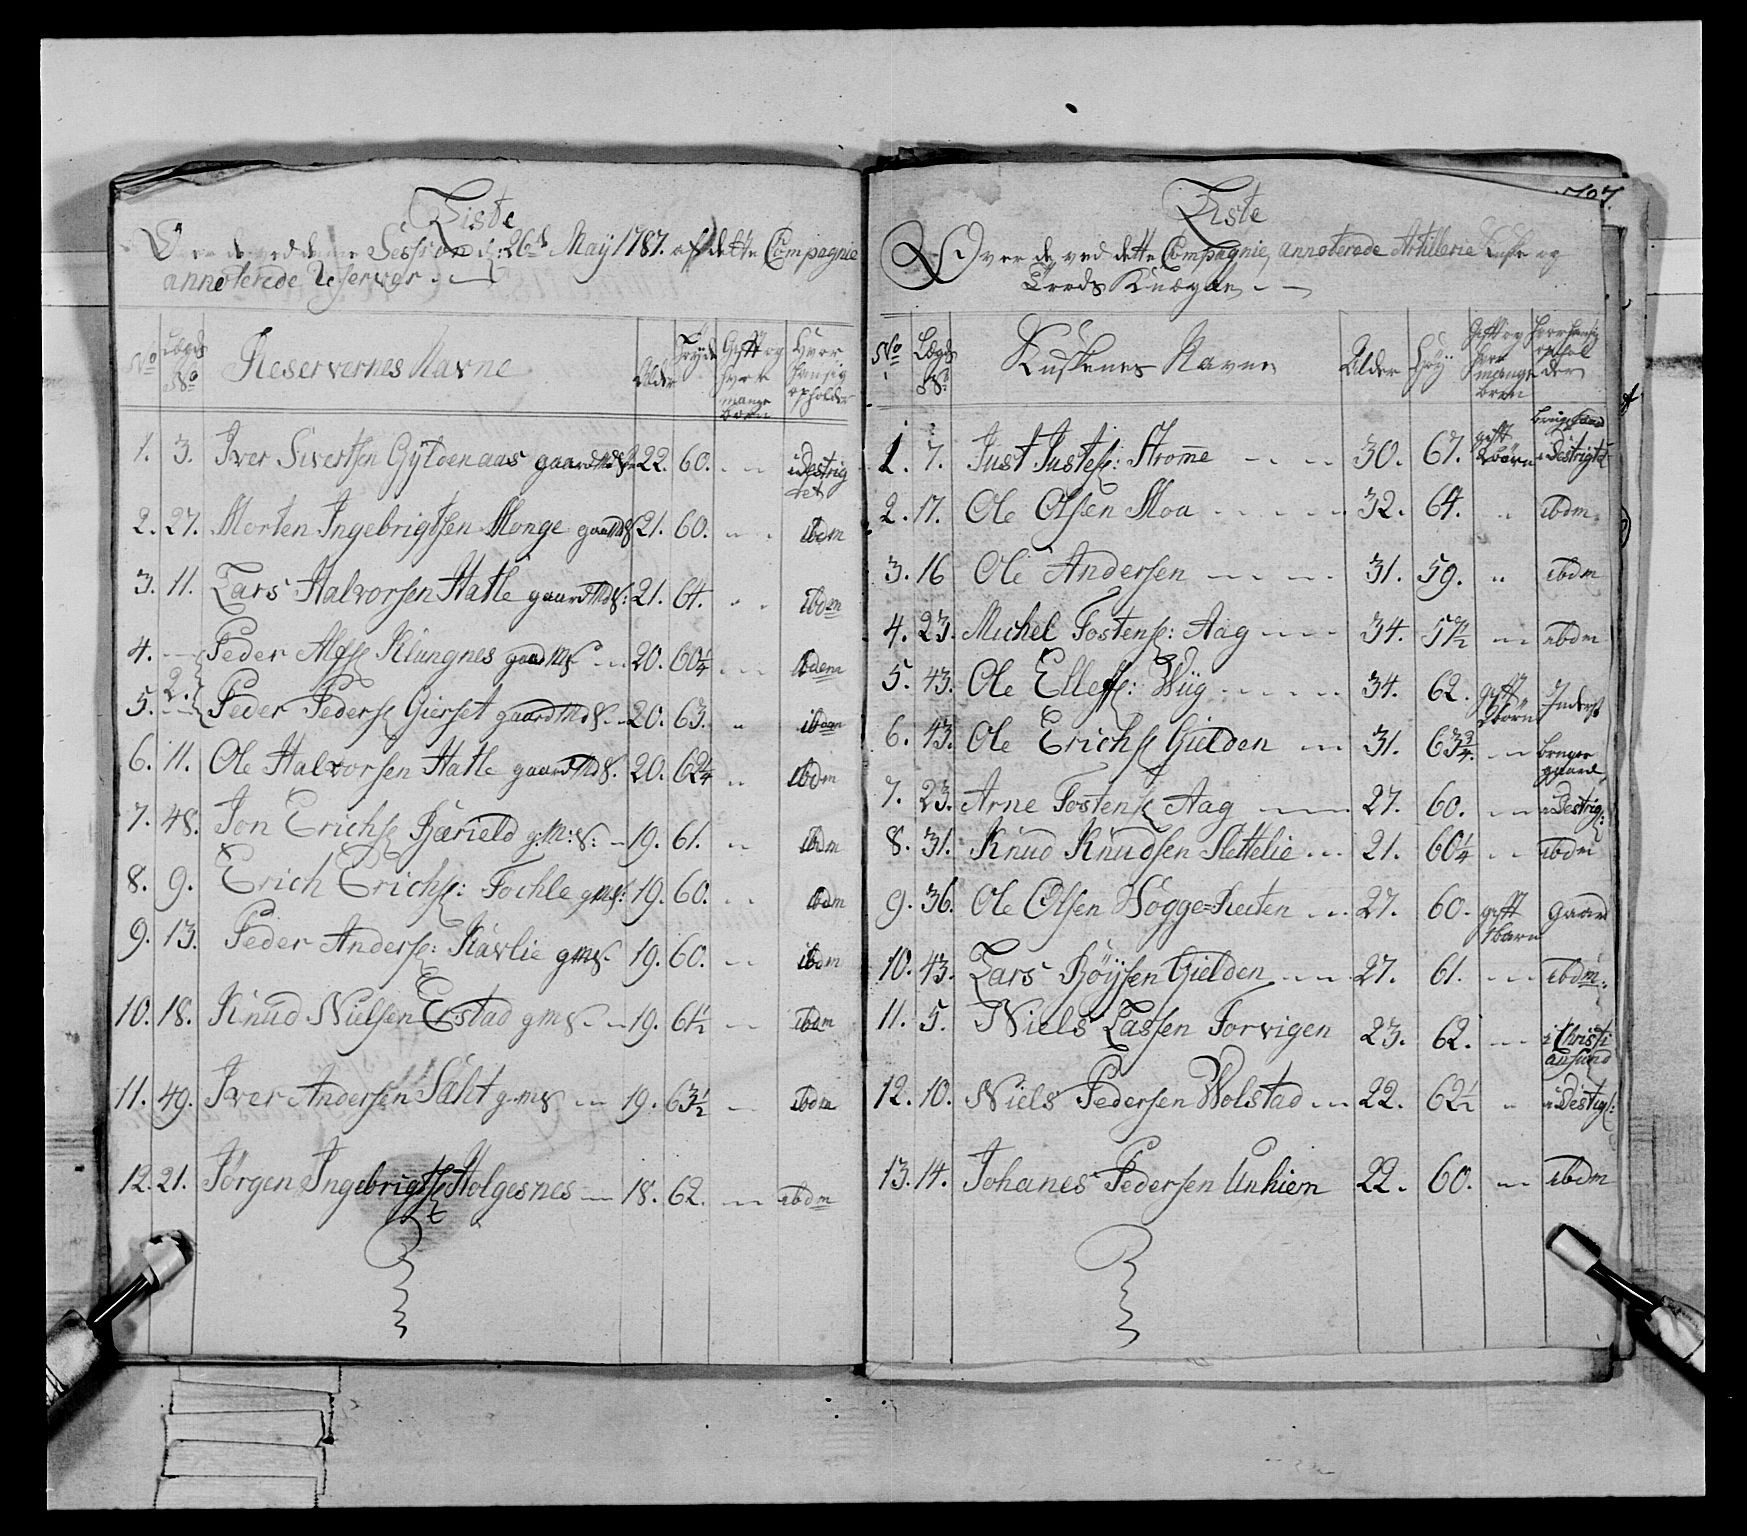 Liste
Over de ved denne Session d: 26d May 1787. af dette Compagnie
annoterede Reserver.
No
Lægds No
Reservernes Navne
Alder
Høyde
Gift og hvor mange børn
Hvor han sig opholder
1. 3. Iver Sivertsen Gyldenaas gaardMdS 22. 60. " " i Destrigtet
2. 27. Morten Ingebrigtsen Monge gaardMdS 21. 60. " " ibdm
3. 11. Lars Halvorsen Hatle gaardMdS: 21. 64. " " ibdm
4. Peder Klungnes gaardMdS 20. 60 1/4 " " ibdem
2.
5. Peder Peders: Gierset gaardMdS. 20. 63. " ibdm
6. 11. Ole Halvorsen Hatle gaardMdS. 20. 62 1/4 " ibdm
7. 48. Jon Erichs: g:M:S: 19. 61. " ibdm
8. 9. Erich Erichs: Fochle gMS: 19. 60. " " ibdm
9. 13. Peder Anders: Kavlie gMS. 19. 60. " ibdm
10. 18. Knud Nielsen Erstad gMS. 19. 61 1/2 " ibdm
11. 49. Iver Andersen Salt g.MS 19. 63 1/2 " ibdm
12. 21. Jørgen Ingebrigts: Holgesnes 18. 62. " ibdm
707.
Liste
Over de ved dette Compagnie, annoterede Artillerie Kuske og
Treds Knægte
No
Lægds No
Kuskenes Navne
Alder
Høy
Gift og hvor mange børn
Hvor han sig opholder
1. 7. Just Justes: Strømme 30. 67. gift 2 børn bruger gaard i Destrigtet
2. 17. Ole Olsen Moa 32. 64. " ibdm
3. 16 Ole Andersen 31. 59. " ibdm
4. 23. Michel Tostens: Aag 34. 57 1/2 " ibdm
5. 43. Ole Ellefs: Wiig 34. 62. gift 2 børn Inderst
6. 43. Ole Erichs: Gielden 31. 63 3/4. " bruger gaard
7. 23. Arne Tostens: Aag 27. 60. " i Destrig:
8. 31. Knud Knudsen Slettelie 21. 60 1/4 " " ibdm
9. 36. Ole Olsen Wogge=Reiten 27. 60. gift 1 barn gaard
10. 43. Lars Gielden 27. 61. " ibdm.
11. 5. Niels Lassen Torvigen 23. 62. " i Christiansund
12. 10. Niels Pedersen Wolstad 22. 62 1/2 " i Destigt:
13. 14. Johanes Pedersen Unhiem 22. 60. " ibdm